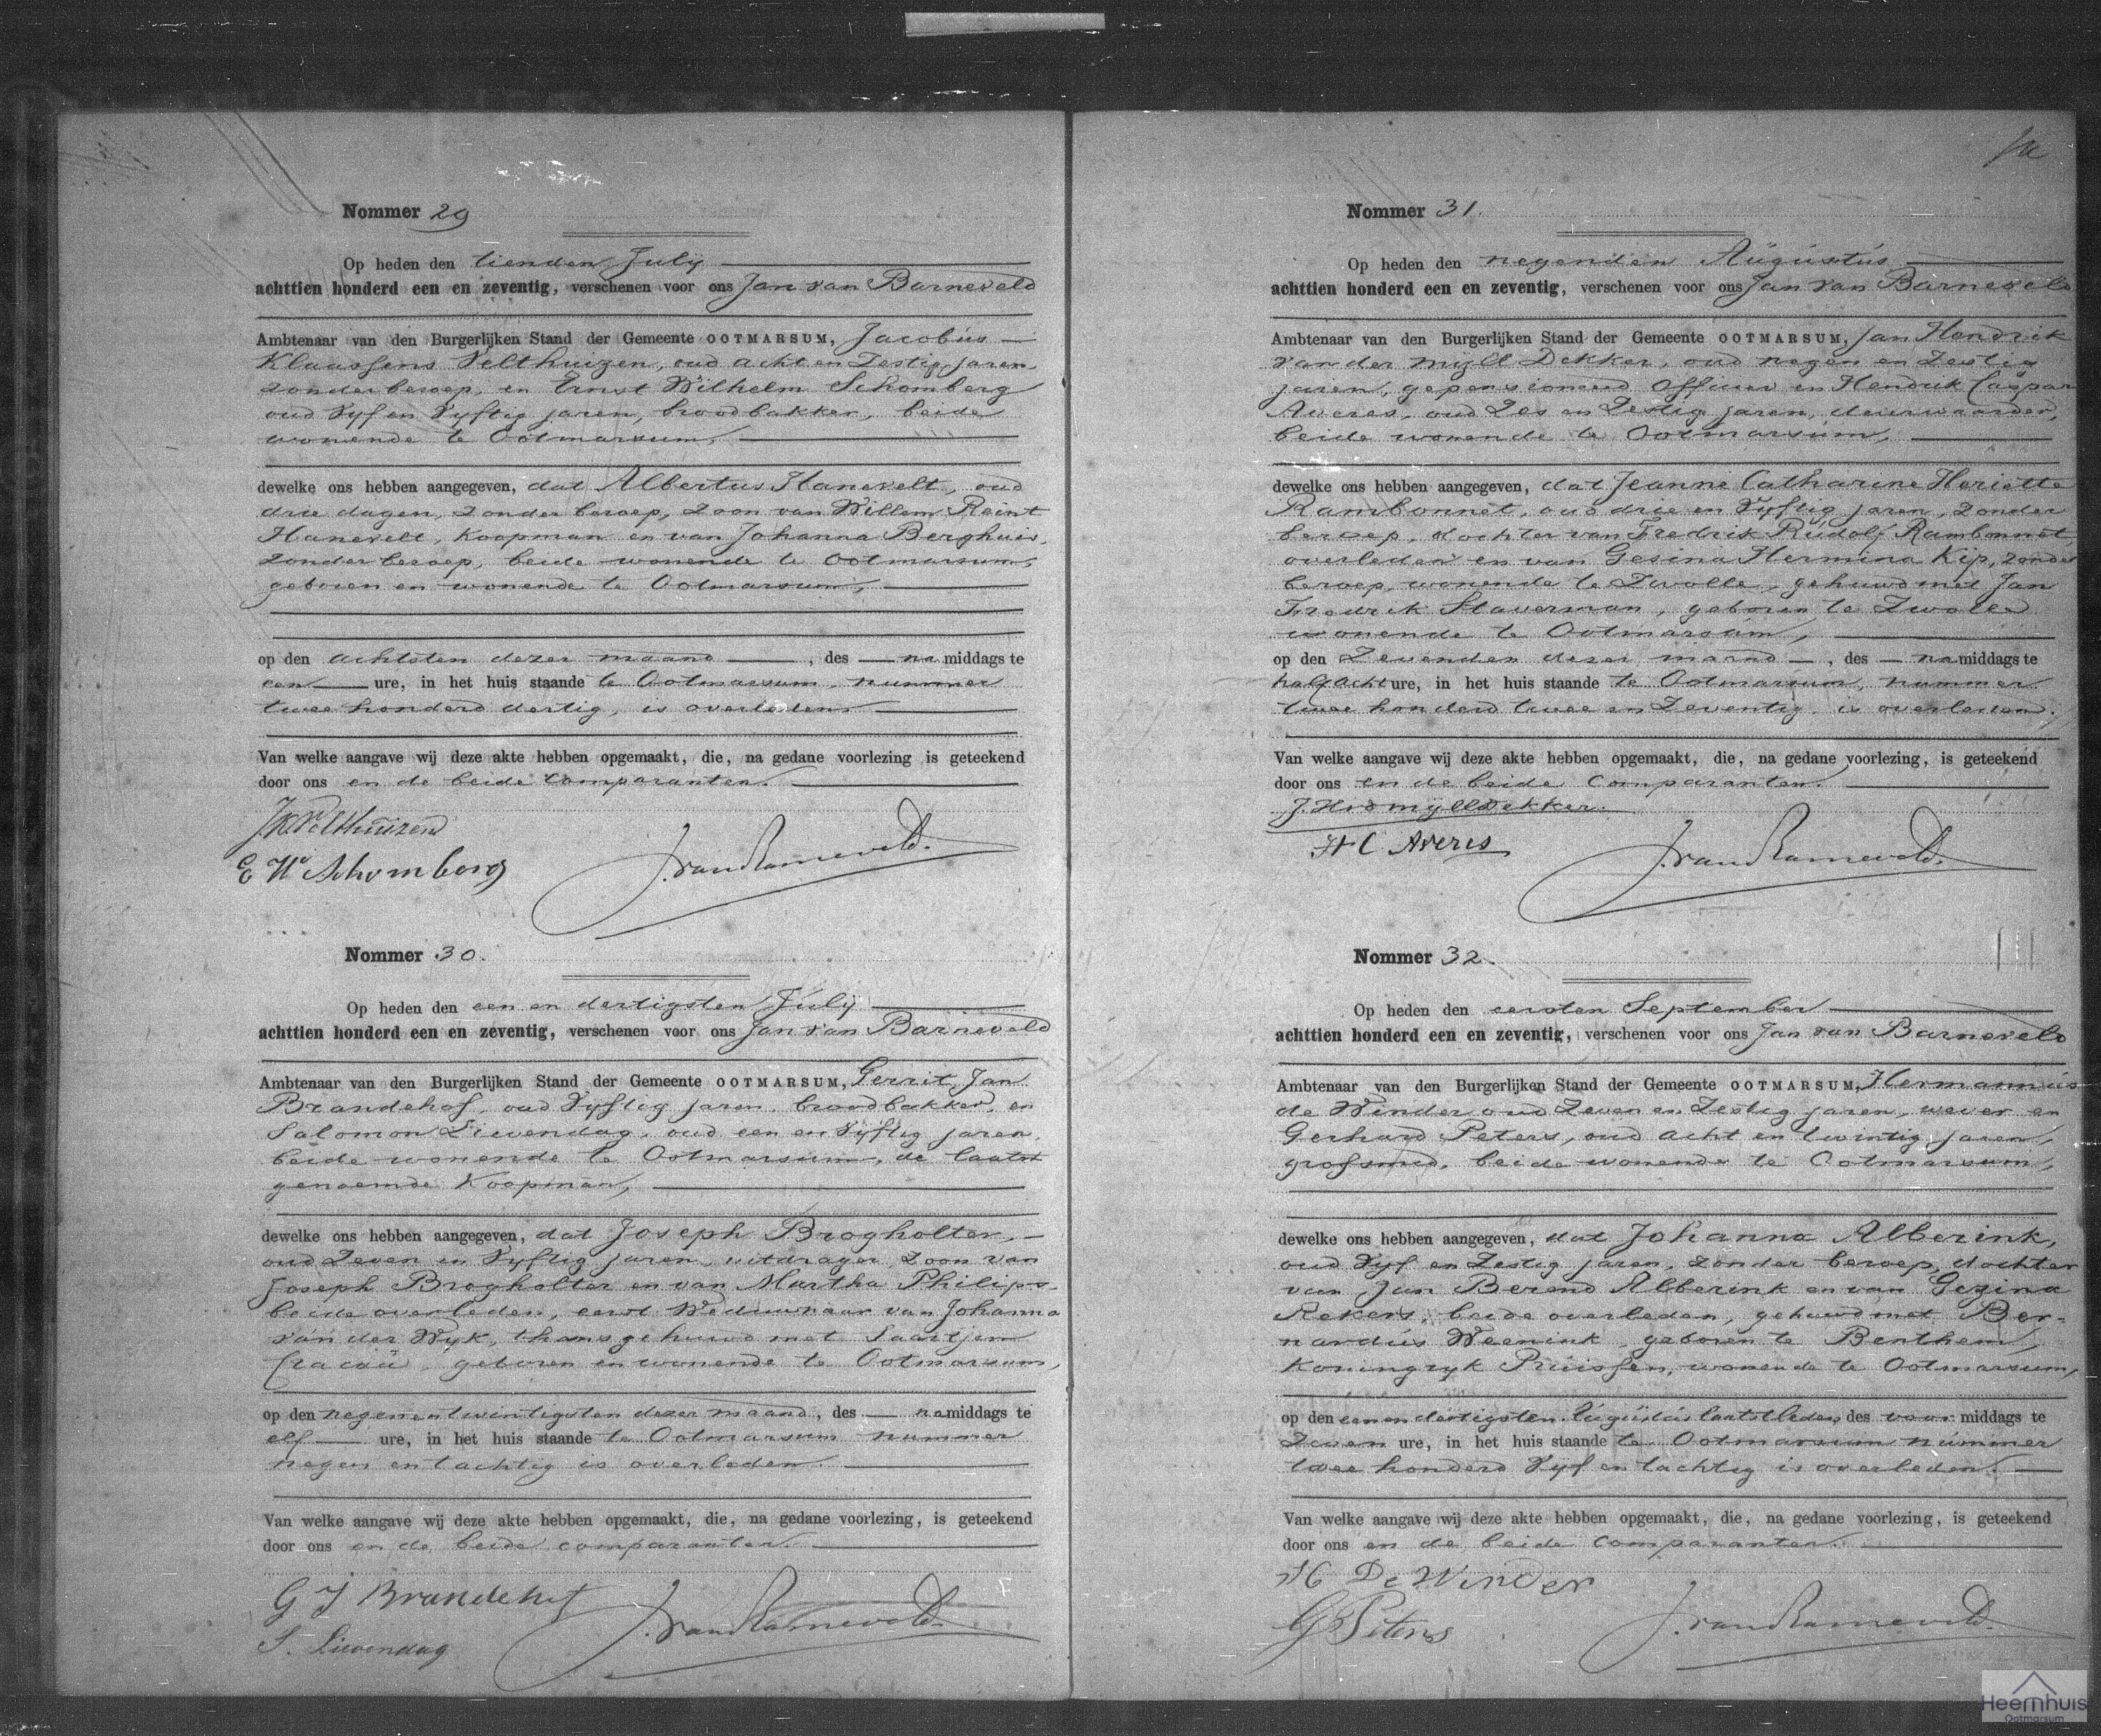 Nommer 29
Op heden den tienden July
achttien honderd een en zeventig, verschenen voor ons Jan van Barneveld
Ambtenaar van den Burgerlijken Stand der Gemeente OOTMARSUM, Jacobus
Klaassens Velthuizen, oud acht en Zestig jaren
zonder beroep, en Ernst Wilhelm Schomberg
oud Vyf en Vyftig jaren, broodbakker, beide
wonende te Ootmarsum,
dewelke ons hebben aangegeven, dat Albertus Hanevelt, oud
drie dagen, zonder beroep, zoon van Willem Reint
Hanevelt, Koopman en van Johanna Berghuis,
zonder beroep, beide wonende te Ootmarsum,
geboren en wonende te Ootmarsum,
op den achtsten dezer maand, des na middags te
een ure, in het huis staande te Ootmarsum, nummer
twee honderd dertig, is overleden
Van welke aangave wij deze akte hebben opgemaakt, die, na gedane voorlezing is geteekend
door ons en de beide Comparanten.
JKVelthuizen
E W Schomberg
J. van Barneveld.
Nommer 30.
Op heden den een en dertigsten July
achttien honderd een en zeventig, verschenen voor ons Jan van Barneveld
Ambtenaar van den Burgerlijken Stand der Gemeente OOTMARSUM, Gerrit Jan
Brandehof, oud Vyftig jaren, broodbakker, en
Salomon Lievendag, oud een en Vyftig jaren,
beide wonende te Ootmarsum, de laatst
genoemde Koopman,
dewelke ons hebben aangegeven, dat Joseph Brogholter,
oud Zeven en Vyftig jaren, uitdrager, Zoon van
Joseph Brogholter en van Martha Philips
beide overleden, eerst Weduwnaar van Johanna
van der Wyk, thans gehuwd met Saartjen
Cracau, geboren en wonende te Ootmarsum,
op den negenentwintigsten dezer maand, des na middags te
elf ure, in het huis staande te Ootmarsum nummer
negen en tachtig is overleden.
Van welke aangave wij deze akte hebben opgemaakt, die, na gedane voorlezing, is geteekend
door ons en de beide comparanten.
G J Brandehof
S. Lievendag
J. van Barneveld.
Nommer 31.
Op heden den negenden Augustus
achttien honderd een en zeventig, verschenen voor ons Jan van Barneveld
Ambtenaar van den Burgerlijken Stand der Gemeente OOTMARSUM, Jan Hendrik
van der Mijll Dekker, oud negen en Zestig
jaren, gepensioneerd Officier en Hendrik Caspar
Averes, oud Zes en Zestig jaren, deurwaarder,
beide wonende te Ootmarsum,
dewelke ons hebben aangegeven, dat Jeanne Catharine Heriette
Rambonnet, oud drie en Vyftig jaren, zonder
beroep, dochter van Fredrik Rudolf Rambonnet
overleden en van Gesina Hermina Kijp, zonder
beroep, wonende te Zwolle, gehuwd met Jan
Fredrik Staverman, geboren te Zwolle
wonende te Ootmarsum,
op den Zevenden dezer maand, des na middags te
half acht ure, in het huis staande te Ootmarsum, nummer
twee honderd twee en Zeventig, is overleden.
Van welke aangave wij deze akte hebben opgemaakt, die, na gedane voorlezing, is geteekend
door ons en de beide Comparanten.
J.HvdMijllDekker.
H C Averes
J. van Barneveld.
Nommer 32.
Op heden den eersten September
achttien honderd een en zeventig, verschenen voor ons Jan van Barneveld
Ambtenaar van den Burgerlijken Stand der Gemeente OOTMARSUM, Hermannus
de Winder oud Zeven en Zestig jaren, wever en
Gerhard Peters, oud acht en twintig jaren,
grofsmid, beide wonende te Ootmarsum,
dewelke ons hebben aangegeven, dat Johanna Alberink,
oud Vyf en Zestig jaren, zonder beroep, dochter
van Jan Berend Alberink en van Gezina
Rekers, beide overleden, gehuwd met Ber-
nardus Weenink, geboren te Benthem,
Koningryk Pruissen, wonende te Ootmarsum,
op den een en dertigsten Augustus laatstleden, des voor middags te
Zeven ure, in het huis staande te Ootmarsum nummer
twee honderd Vyf en tachtig is overleden.
Van welke aangave wij deze akte hebben opgemaakt, die, na gedane voorlezing, is geteekend
door ons en de beide Comparanten.
H De Winder
G Peters
J. van Barneveld.
Heemhuis
Ootmarsum